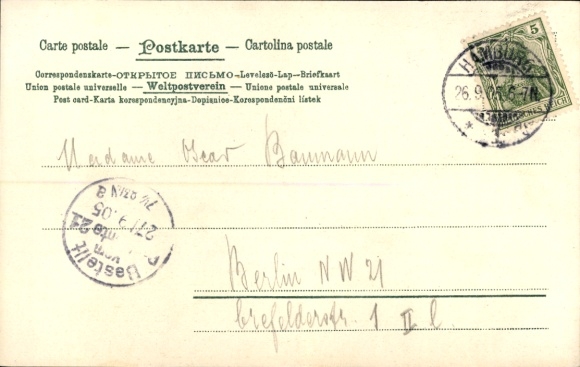 Carte postale — Postkarte — Cartolina postale
Correspondenskarte-ОТКРЫТОЕ ПИСЬМО-Levelező-Lap-Briefkaart
Union postale universelle — Weltpostverein — Unione postale universale
Post card-Karta korespondencyjna-Dopisnice-Korespondenční lístek
5
HAMBURG
26.9.05.6-7N.
1
REICH
Madame Oscar Baumann
Bestellt
vom
21
27/9.05
Berlin NW 21
Crefelderstr. 1 II l.